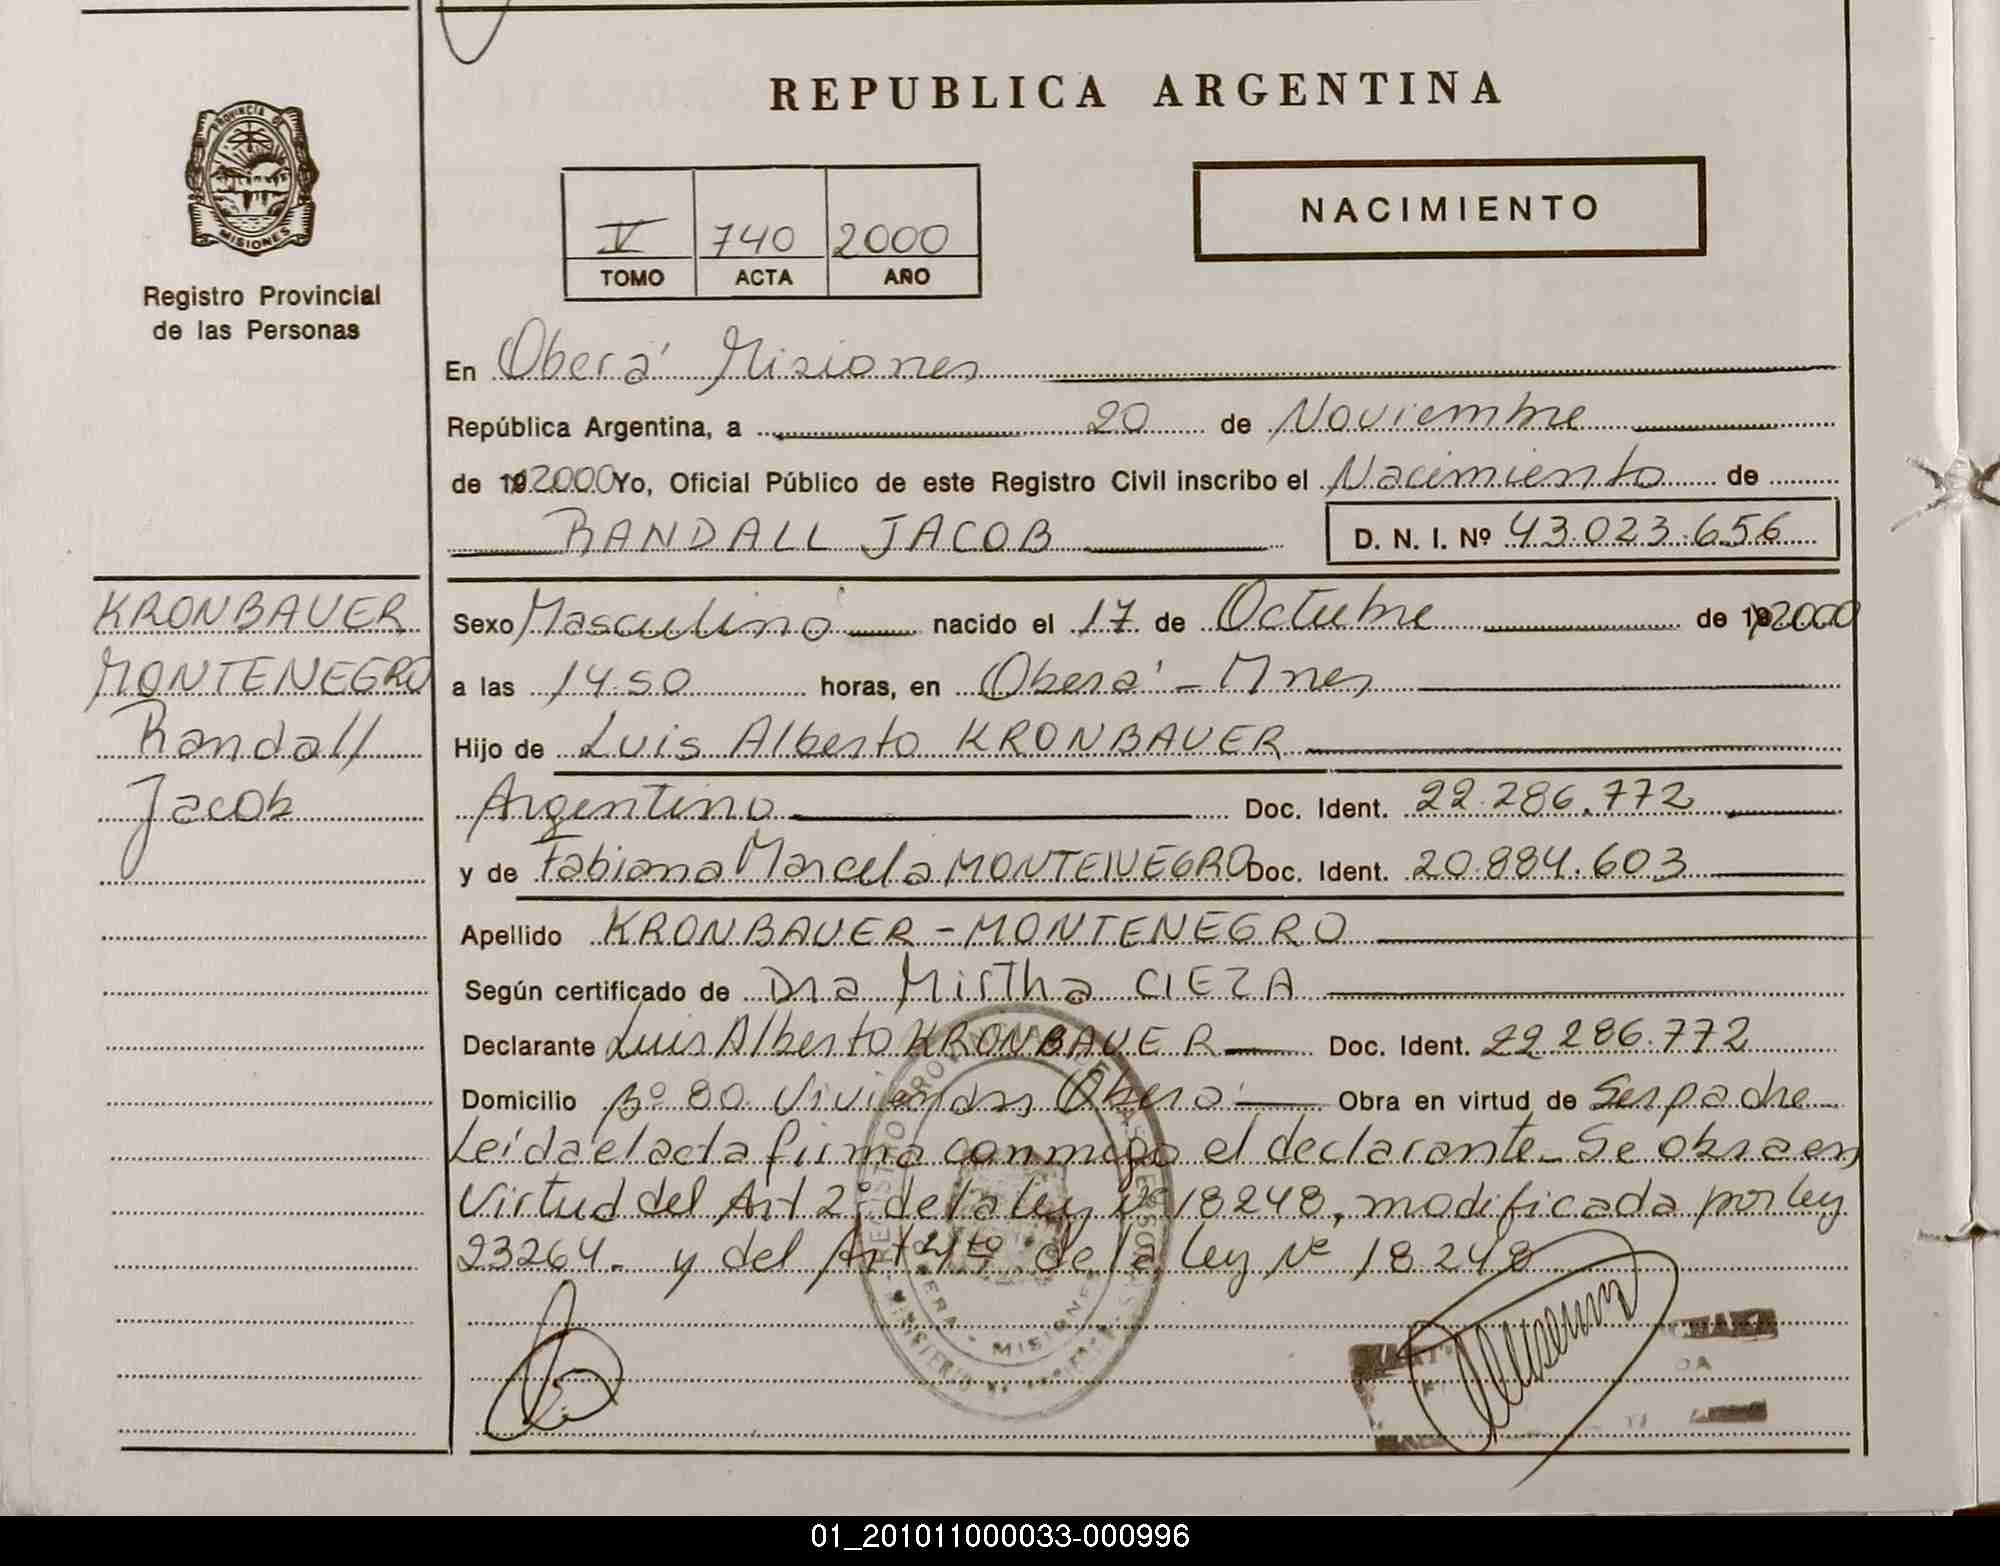 REPUBLICA ARGENTINA
PROVINCIA DE
MISIONES
Registro Provincial
de las Personas
V 740 2000
TOMO ACTA AÑO
NACIMIENTO
En Oberá Misiones
República Argentina, a 20 de Noviembre
de 19 2000 Yo, Oficial Público de este Registro Civil inscribo el Nacimiento de
RANDALL JACOB D. N. I. Nº 43.023.656
KRONBAUER
MONTENEGRO
Randall
Jacob
Sexo Masculino nacido el 17 de Octubre de 19 2000
a las 14.50 horas, en Oberá - Mnes
Hijo de Luis Alberto KRONBAUER
Argentino Doc. Ident. 22.286.772
y de Fabiana Marcela MONTENEGRO Doc. Ident. 20.884.603
Apellido KRONBAUER - MONTENEGRO
Según certificado de Dra Mirtha CIEZA
Declarante Luis Alberto KRONBAUER Doc. Ident. 22 286.772
Domicilio Bº 80 Viviendas Oberá Obra en virtud de Ser padre
Leída el acta firma conmigo el declarante. Se obra en
Virtud del Art 2º de la ley Nº 18248, modificada por ley
23264. y del Art 4to de la ley Nº 18248
MISIONES
01_201011000033-000996